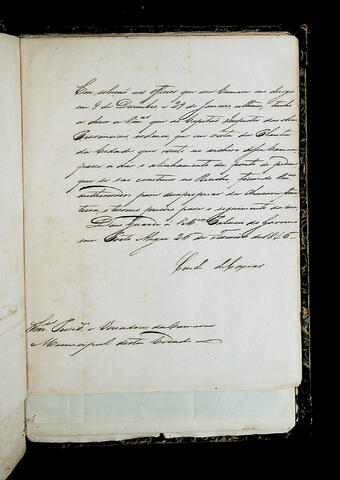 Em solução aos officios que essa Camara me dirigio
em 9 de Dezembro e 29 de Janeiro ultimos, tenho
a dizer a Vm.ces que o Inspector das obras
Provinciaes ordenei que em vista da Planta
da Cidade que existe no archivo dessa Camara
passe a dar o alinhamento da ponte de pedra
que se vai construir no Riacho, ficando
authorisados para desapropriar
terreno preciso para o seguimento da
Deos Guarde a V.Mces Palacio do Governo
em Porto Alegre 26 de Fevereiro de 1846
Conde de Caxias
Snr.es Presid.e e Vereadores da Camara
Municipal desta Cidade